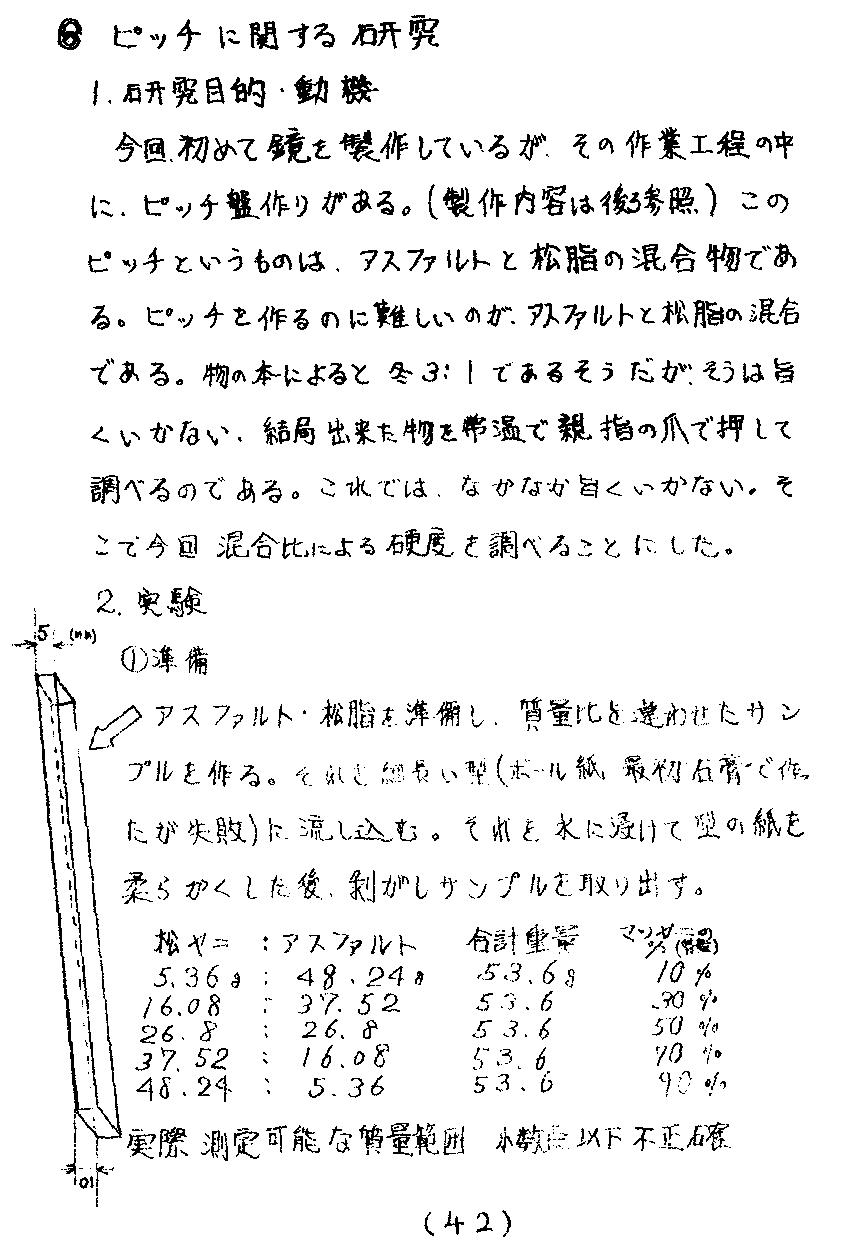 ⑧ ピッチに関する研究
1. 研究目的・動機
今回、初めて鏡を製作しているが、その作業工程の中
に、ピッチ盤作りがある。(製作内容は後ろ参照)この
ピッチというものは、アスファルトと松脂の混合物であ
る。ピッチを作るのに難しいのが、アスファルトと松脂の混合
である。物の本によると冬3:1であるそうだが、そうは旨
くいかない、結局出来た物を常温で親指の爪で押して
調べるのである。これでは、なかなか旨くいかない。そ
こで今回 混合比による硬度を調べることにした。
2. 実験
5 (mm)
①準備
アスファルト・松脂を準備し、質量比を違わせたサン
プルを作る。それを細長い型(ボール紙 最初石膏で作っ
たが失敗)に流し込む。それを水に浸けて型の紙を
柔らかくした後、剥がしサンプルを取り出す。
松ヤニ : アスファルト 合計重量
5.36g : 48.24g 53.6g 10%
16.08 : 37.52 53.6 30%
26.8 : 26.8 53.6 50%
37.52 : 16.08 53.6 70%
48.24 : 5.36 53.6 90%
実際測定可能な質量範囲 小数点以下不正確
10
(42)